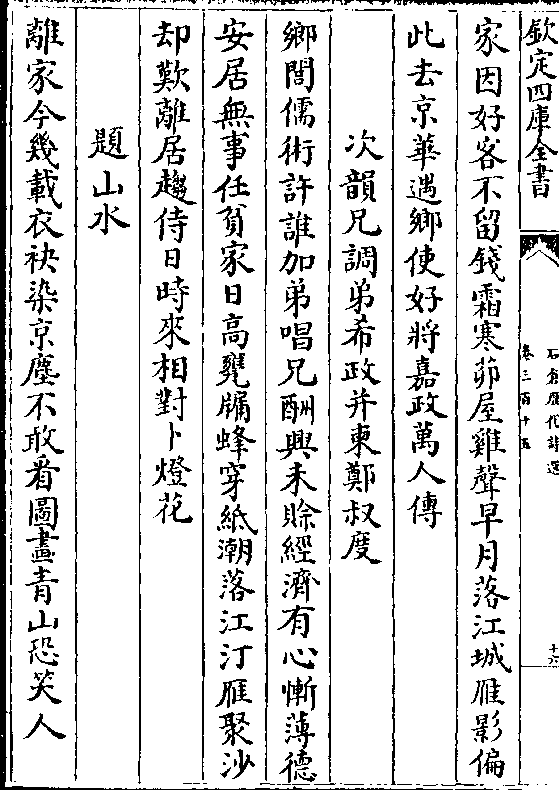 欽定四庫全書
石倉歷代詩選
卷三百十五
十六
家因好客不留錢霜寒茆屋雞聲早月落江城雁影偏
此去京華遇鄉使好將嘉政萬人傳
次韻兄調弟希政并柬鄭叔度
鄉閭儒術許誰加弟唱兄酬興未賖經濟有心慚薄德
安居無事任貧家日高甕牖蜂穿紙潮落江汀雁聚沙
却歎離居趨侍日時來相對卜燈花
題山水
離家今幾載衣袂染京塵不敢看圖畫青山恐笑人